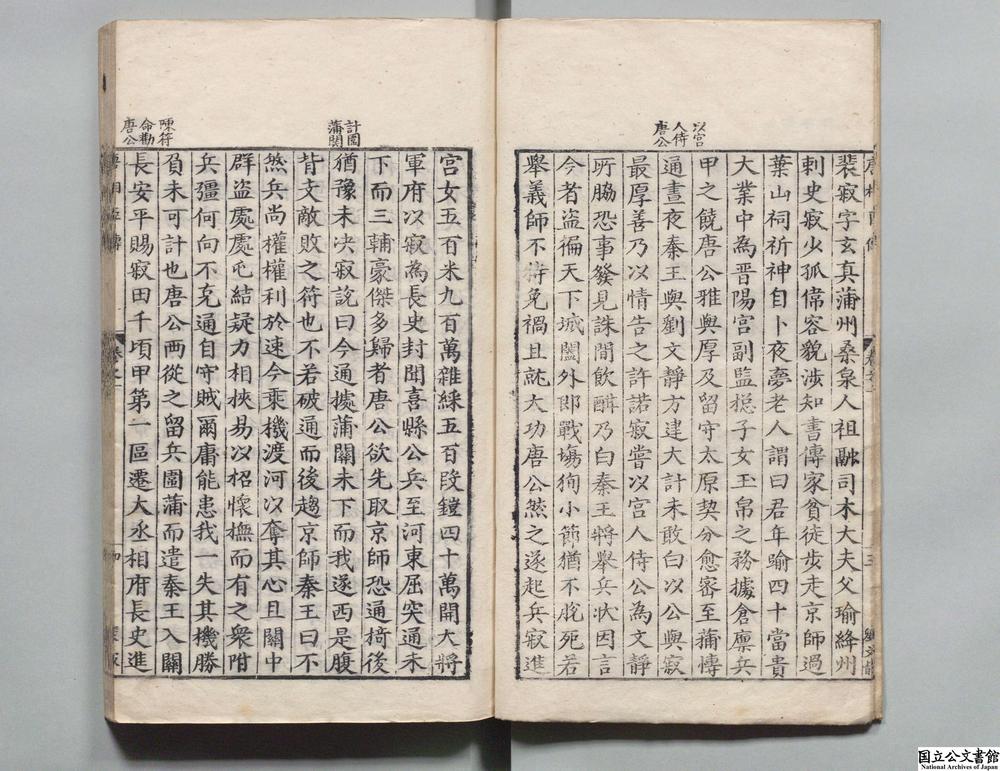 以宫
人侍
唐公
裴寂字玄真蒲州桑泉人祖融司木大夫父瑜絳州
刺史寂少孤偉容貌涉知書傳家貧徒步走京師過
葉山祠祈神自卜夜夢老人謂曰君年踰四十當貴
大業中為晋陽宫副監揔子女玉帛之務據倉廪兵
甲之饒唐公雅與厚及留守太原契分愈密至蒱愽
通晝夜秦王與劉文靜方建大計未敢白以公與寂
最厚善乃以情告之許諾寂嘗以宫人侍公為文靜
所脇恐事發見誅間飲酣乃白秦王將舉兵状因言
今者盗徧天下城闔外即戰塲狥小節猶不脱死若
舉義師不特免禍且就大功唐公然之遂起兵寂進
計圍
蒲關
陳符
命勸
唐公
宫女五百米九百萬雜綵五百段鎧四十萬開大將
軍府以寂為長史封聞喜縣公兵至河東屈突通未
下而三輔豪傑多歸者唐公欲先取京師恐通掎後
猶豫未决寂說曰今通據蒲關未下而我遂西是腹
背支敵敗之符也不若破通而後趨京師秦王曰不
然兵尚權權利於速今乘機渡河以奪其心且關中
群盗處處屯結疑力相挾易以招懷撫而有之衆附
兵彊何向不克通自守賊爾庸能患我一失其機勝
負未可計也唐公兩從之留兵圍蒲而遣秦王入關
長安平賜寂田千頃甲第一區遷大丞相府長史進
国立公文書館
National Archives of Japan